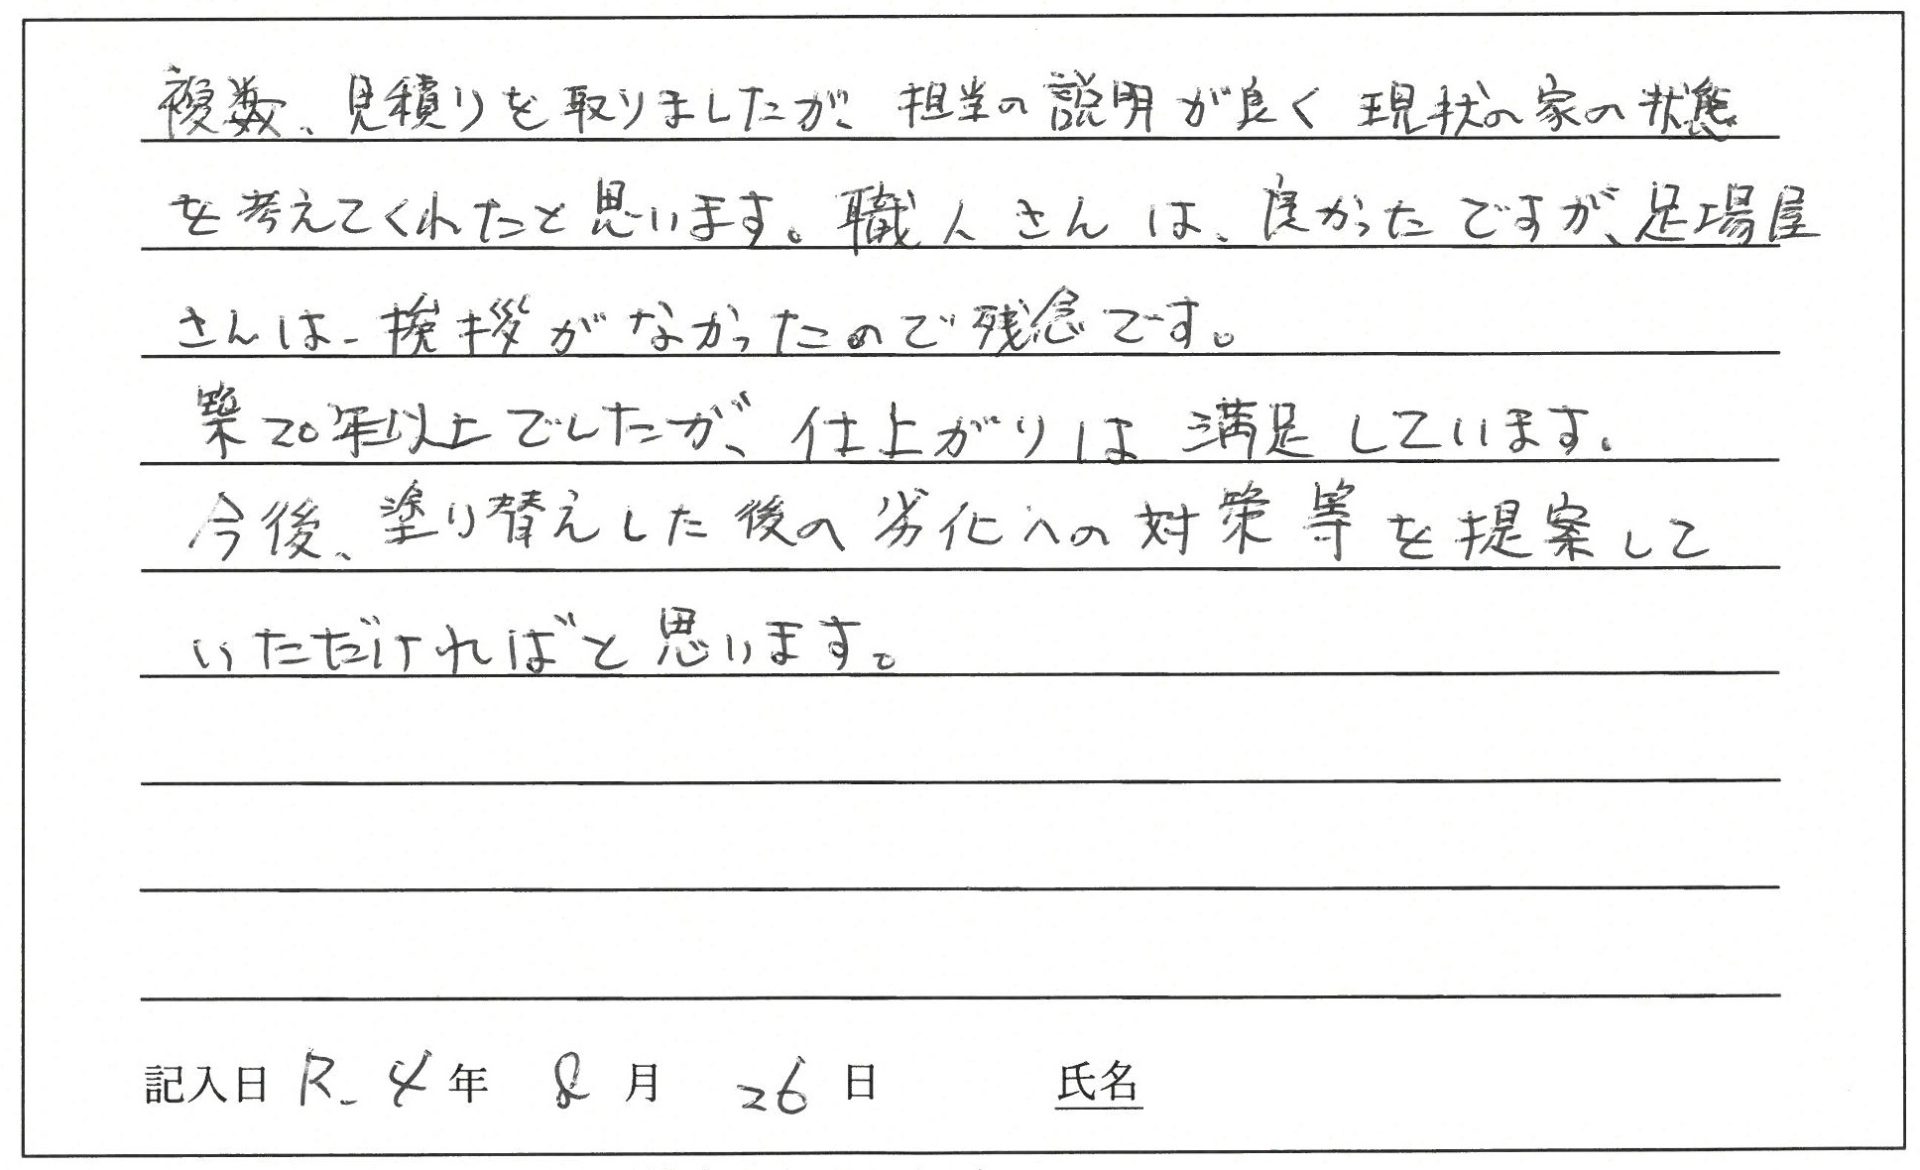 複数、見積りを取りましたが、担当の説明が良く現状の家の状態
を考えてくれたと思います。職人さんは、良かったですが、足場屋
さんは、挨拶がなかったので残念です。
築20年以上でしたが、仕上がりは満足しています。
今後、塗り替えした後の劣化への対策等を提案して
いただければと思います。
記入日 R.4年 8月 26日 氏名